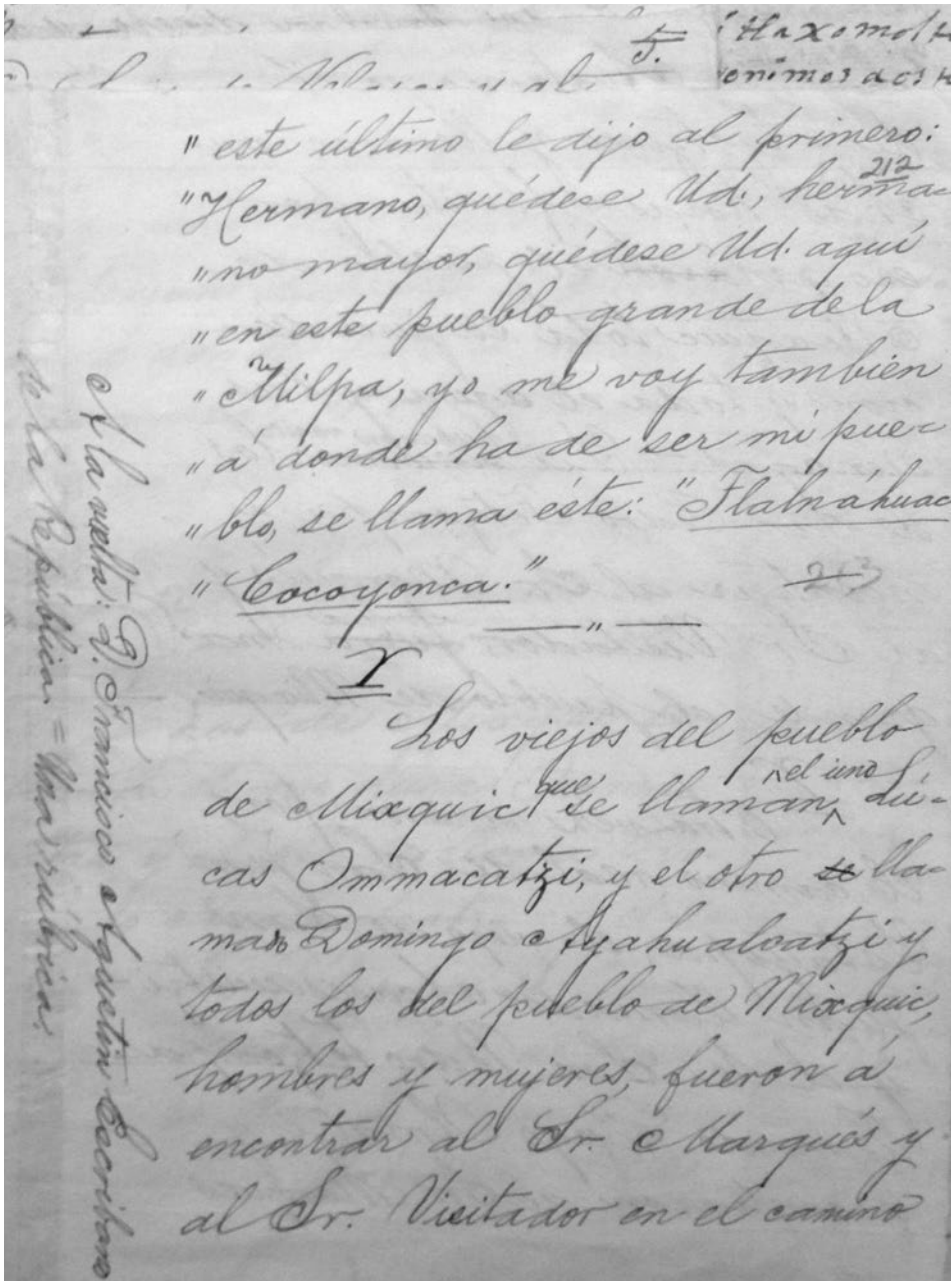 5.
tlaxomol
onimos a cs
" este último le dijo al primero:
212
" Hermano, quédese Ud., herma-
" no mayor, quédese Ud. aquí
" en este pueblo grande de la
" Milpa, yo me voy tambien
" á donde ha de ser mi pue-
" blo, se llama éste: "Tlalnáhuac
" Cocoyonca."
213
— " —
Y
Los viejos del pueblo
de Mixquic que se llaman, el uno Lú-
cas Ommacatzi, y el otro se lla-
mado Domingo Ayahualcatzi y
todos los del pueblo de Mixquic,
hombres y mujeres, fueron á
encontrar al Sr. Marqués y
al Sr. Visitador en el camino
A la vuelta: D. Francisco Agustin Escribano
de la República. = Una rúbrica.